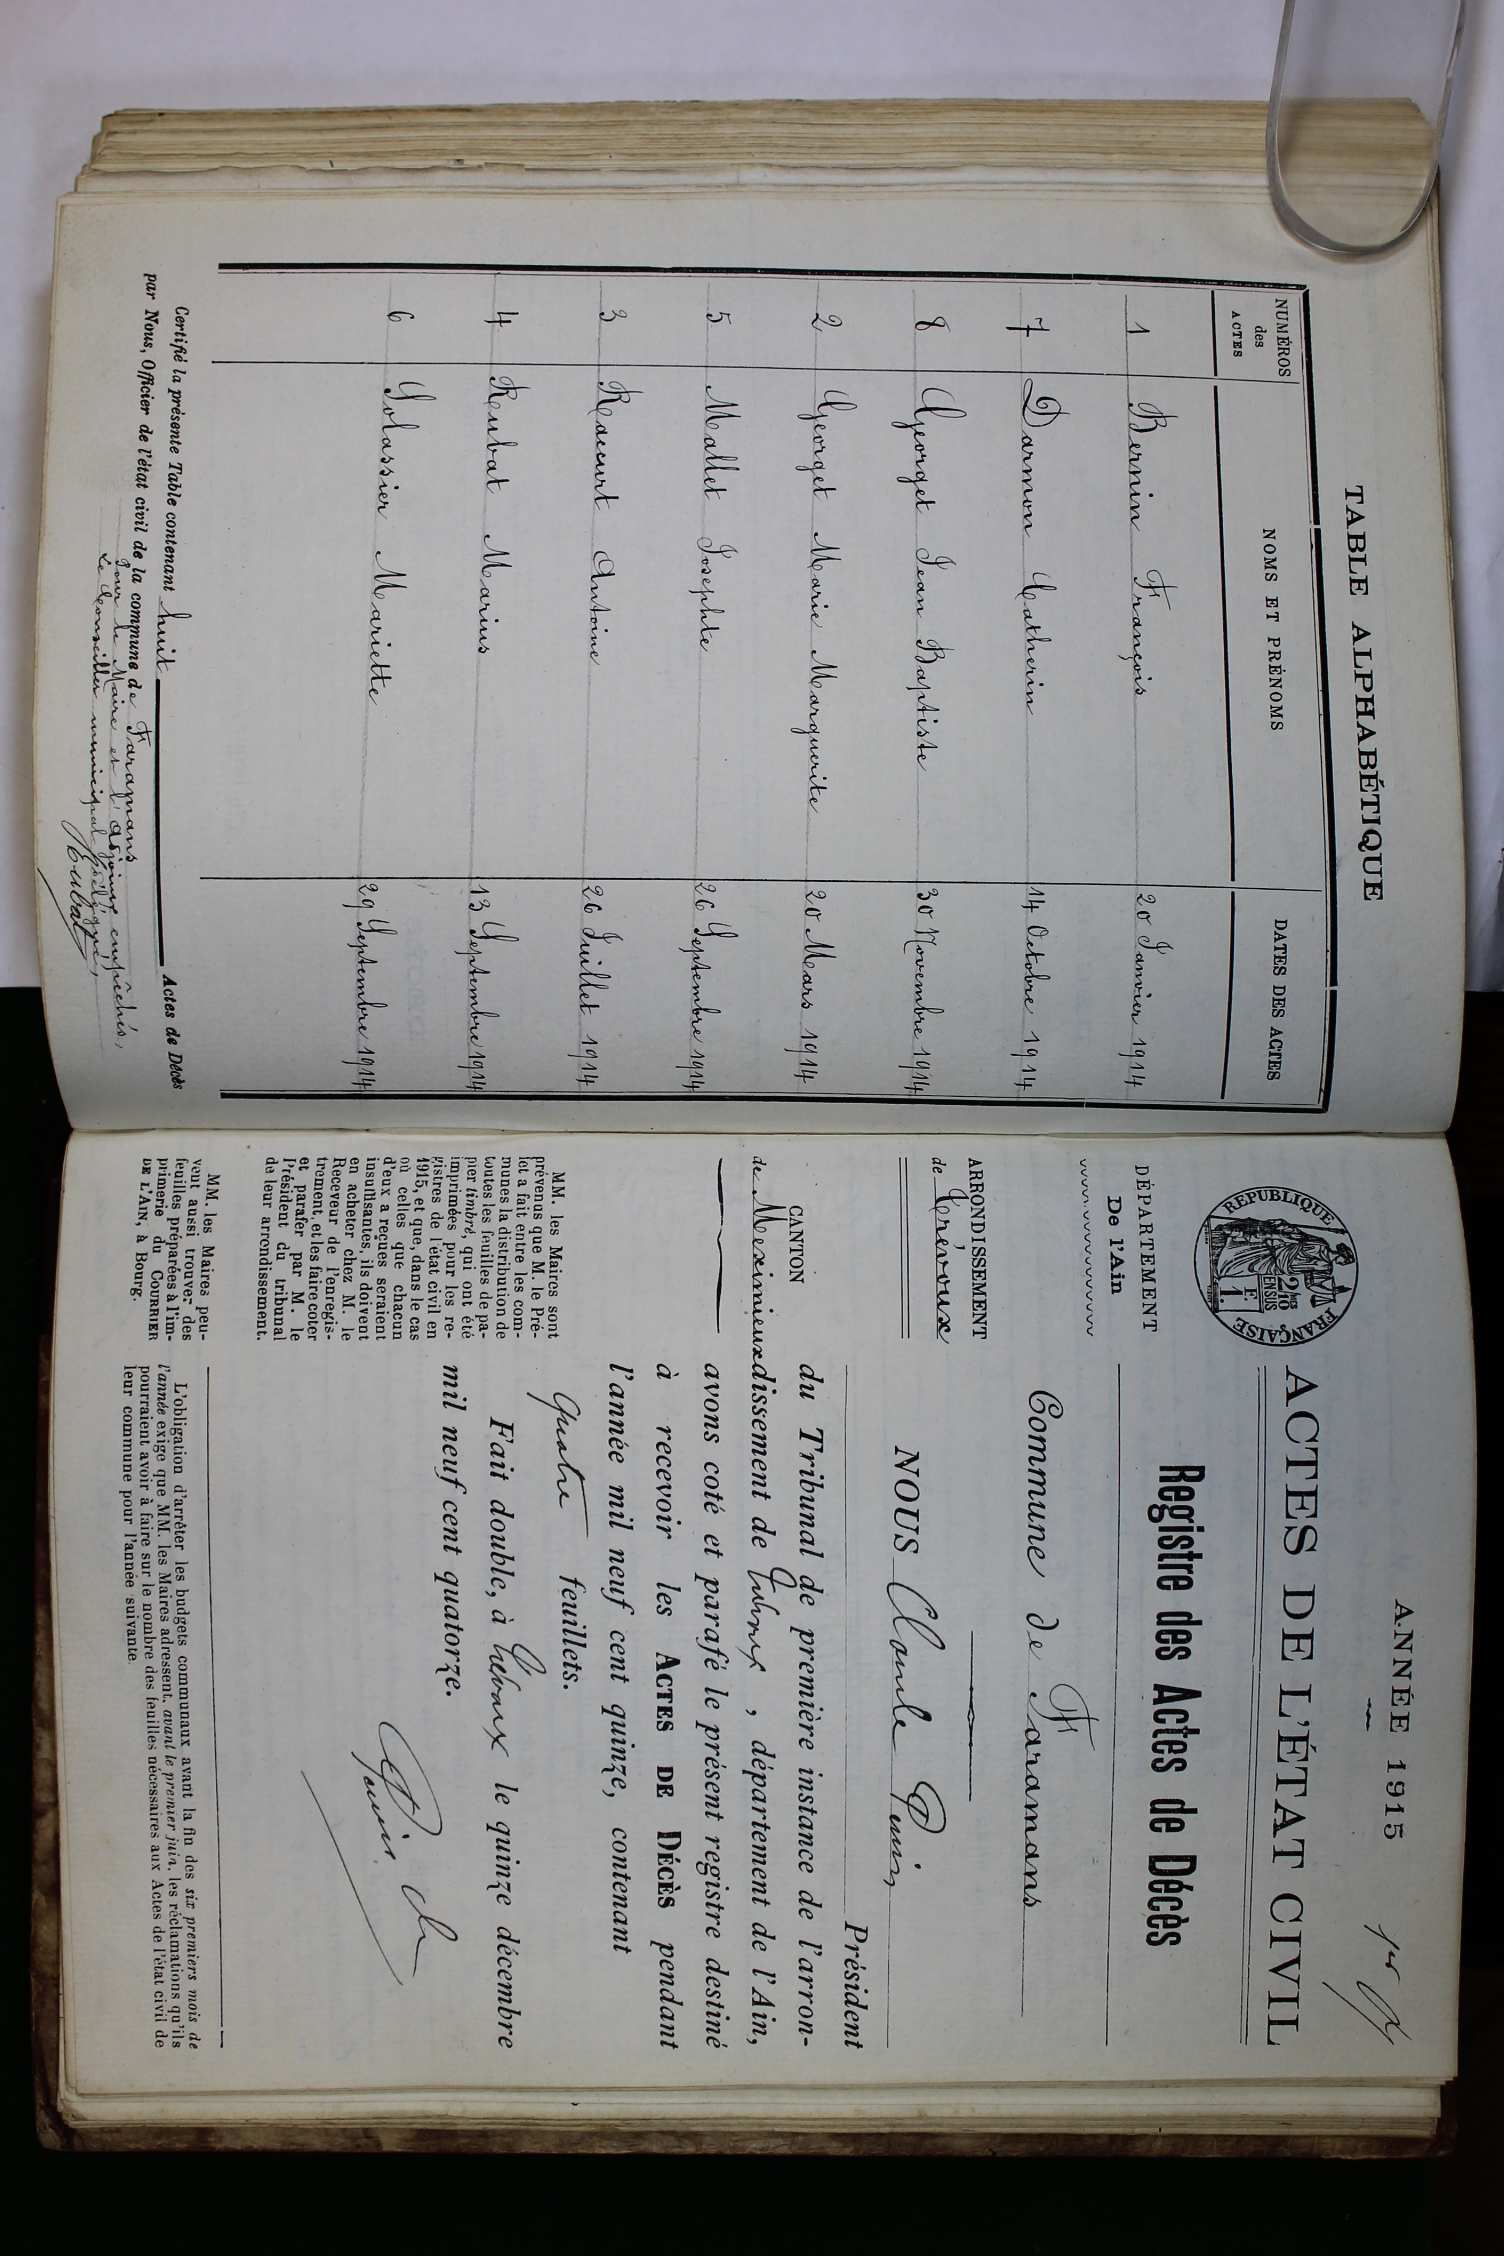 TABLE ALPHABÉTIQUE
NUMÉROS des ACTES
NOMS ET PRÉNOMS
DATES DES ACTES
1 Bernin François 20 Janvier 1914
7 Darmon Catherin 14 Octobre 1914
8 Georget Jean Baptiste 30 Novembre 1914
2 Georget Marie Marguerite 20 Mars 1914
5 Mallet Josephte 26 Septembre 1914
3 Racurt Antoine 26 Juillet 1914
4 Rubat Marius 13 Septembre 1914
6 Solassier Mariette 29 Septembre 1914
Certifié la présente Table contenant huit Actes de Décès
par Nous, Officier de l'état civil de la commune de Faramans
Pour le Maire et l'adjoint empêchés,
Le Conseiller municipal délégué,
Rubat
ANNÉE 1915
1er
ACTES DE L'ÉTAT CIVIL
RÉPUBLIQUE FRANÇAISE
2/10es EN SUS
1 F.
Registre des Actes de Décès
DÉPARTEMENT
De l'Ain
Commune de Faramans
ARRONDISSEMENT
de Trévoux
NOUS Claude Perrin
Président
CANTON
de Meximieux
du Tribunal de première instance de l'arron-
dissement de Trévoux, département de l'Ain,
avons coté et parafé le présent registre destiné
à recevoir les ACTES DE DÉCÈS pendant
l'année mil neuf cent quinze, contenant
quatre feuillets.
Fait double, à Trévoux le quinze décembre
mil neuf cent quatorze.
MM. les Maires sont
prévenus que M. le Pré-
fet a fait entre les com-
munes la distribution de
toutes les feuilles de pa-
pier timbré, qui ont été
imprimées pour les re-
gistres de l'état civil en
1915, et que, dans le cas
où celles que chacun
d'eux a reçues seraient
insuffisantes, ils doivent
en acheter chez M. le
Receveur de l'enregis-
trement, et les faire coter
et parafer par M. le
Président du tribunal
de leur arrondissement.
MM. les Maires peu-
vent aussi trouver des
feuilles préparées à l'im-
primerie du COURRIER
DE L'AIN, à Bourg.
L'obligation d'arrêter les budgets communaux avant la fin des six premiers mois de
l'année exige que MM. les Maires adressent, avant le premier juin, les réclamations qu'ils
pourraient avoir à faire sur le nombre des feuilles nécessaires aux Actes de l'état civil de
leur commune pour l'année suivante.